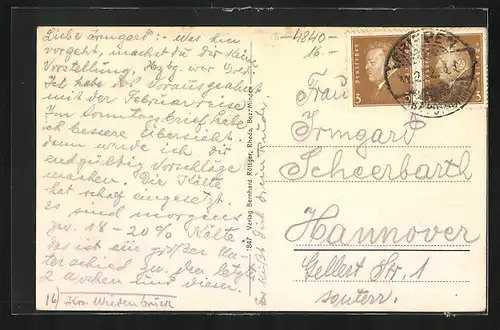 Liebe Irmgard: - Was hier
vorgeht, machst du dir keine
Vorstellung. war
Ich habe vorausgesehn
mit der Februarreise
Im Sonntagsbrief habe
ich bessere Übersicht.
dann werde ich dir
endgültig Vorschläge
machen. Die Kälte
hat scharf eingesetzt.
Es sind morgens
zw. 18-20% Kälte.
das ist ein großer Un-
terschied zw. den letzten
2 Wochen und diesen.
16) Krs. Wiedenbrück
Es küßt dich
1847 Verlag Bernhard Röttger, Rheda, Bez. Minden
-4840-
16.-
DEUTSCHES REICH
3
3
Frau
Irmgard
Scheerbarth
Hannover
Gellert Str. 1
souterr.